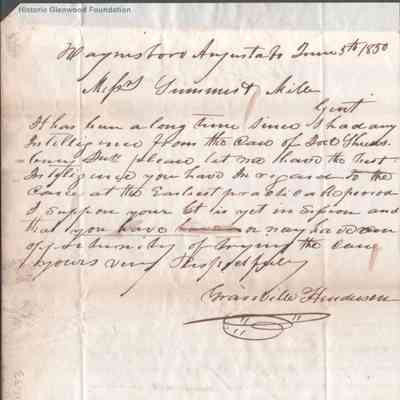 Historic Glenwood Foundation
Waynesboro Augusta Co June 5th 1850
Messrs Summers & Mile
Gent
It has been a long time since I had any
Intelligence from the Case of
please let me have the best
Inteligence you have In regard to the
Case at the Earliest practicable period
I suppose your Ct is yet in Session and
that you have or may have an
oppertunity of trying the Case
yours very Respectfully
Granville Henderson